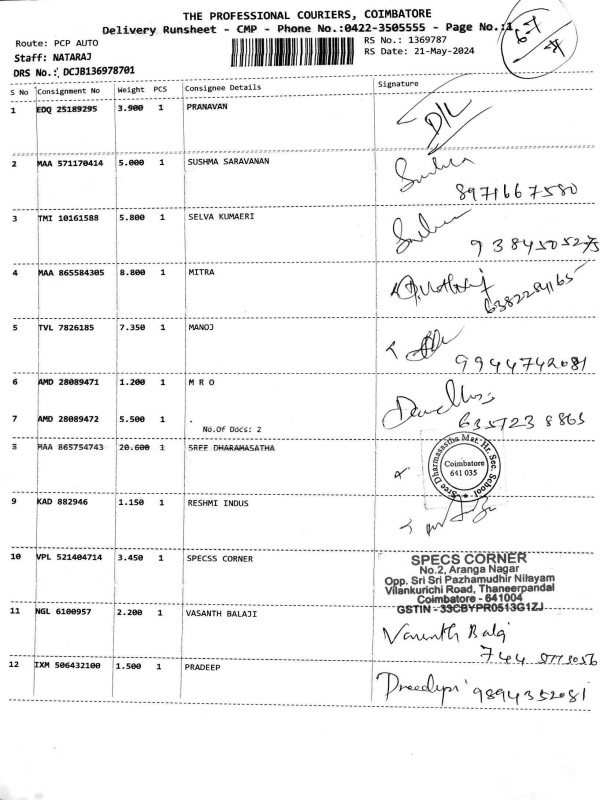 THE PROFESSIONAL COURIERS, COIMBATORE
Delivery Runsheet - CMP - Phone No.:0422-3505555 - Page No.:1
67
Route: PCP AUTO
RS No.: 1369787
Staff: NATARAJ
RS Date: 21-May-2024
DRS No.: DCJB136978701
S No Consignment No Weight PCS Consignee Details Signature
1 EDQ 25189295 3.900 1 PRANAVAN
D/L
2 MAA 571170414 5.000 1 SUSHMA SARAVANAN
8971667580
3 TMI 10161588 5.800 1 SELVA KUMAERI
9384505275
4 MAA 865584305 8.800 1 MITRA
6382284165
5 TVL 7826185 7.350 1 MANOJ
9944742081
6 AMD 28089471 1.200 1 M R O
7 AMD 28089472 5.500 1 .
No.Of Docs: 2
635723 8865
8 MAA 865754743 20.600 1 SREE DHARAMASATHA
Sree Dharmasastha Mat. Hr. Sec. School
Coimbatore
641 035
9 KAD 882946 1.150 1 RESHMI INDUS
10 VPL 521404714 3.450 1 SPECSS CORNER
SPECS CORNER
No.2, Aranga Nagar
Opp. Sri Sri Pazhamudhir Nilayam
Vilankurichi Road, Thaneerpandal
Coimbatore - 641004
GSTIN - 33CBYPR0513G1ZJ
11 NGL 6100957 2.200 1 VASANTH BALAJI
Vasanth Balaj
12 IXM 506432100 1.500 1 PRADEEP
9894352081